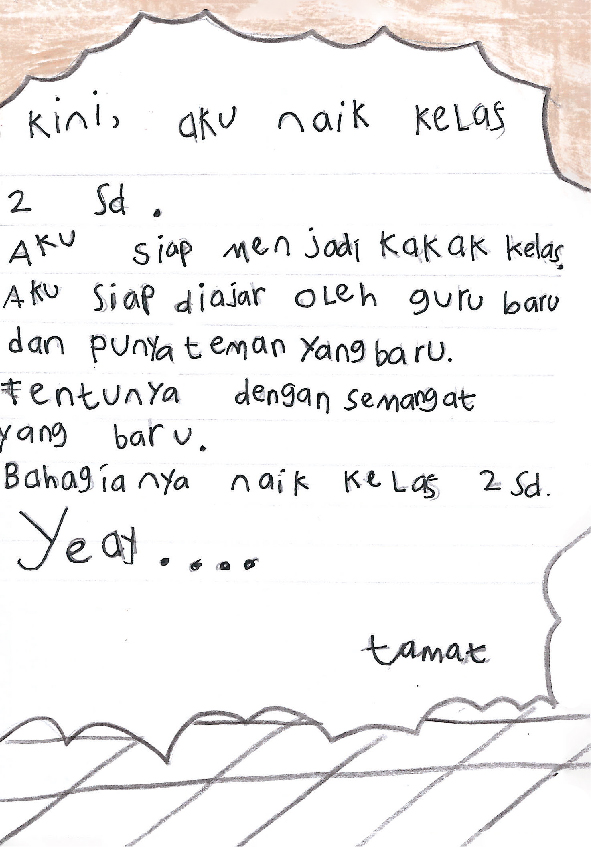 Kini, aku naik kelas
2 Sd.
Aku siap menjadi kakak kelas.
Aku siap diajar oleh guru baru
dan punya teman yang baru.
tentunya dengan semangat
yang baru.
Bahagianya naik kelas 2 Sd.
Yeay....
tamat